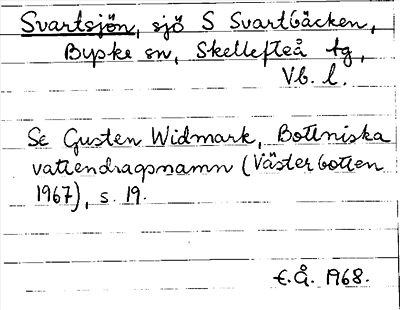 Svartsjön, sjö S Svartbäcken,
Byske sn, Skellefteå tg,
Vb. l.
Se Gusten Widmark, Bottniska
vattendragsnamn (Västerbotten
1967), s. 19.
E.Å. 1968.